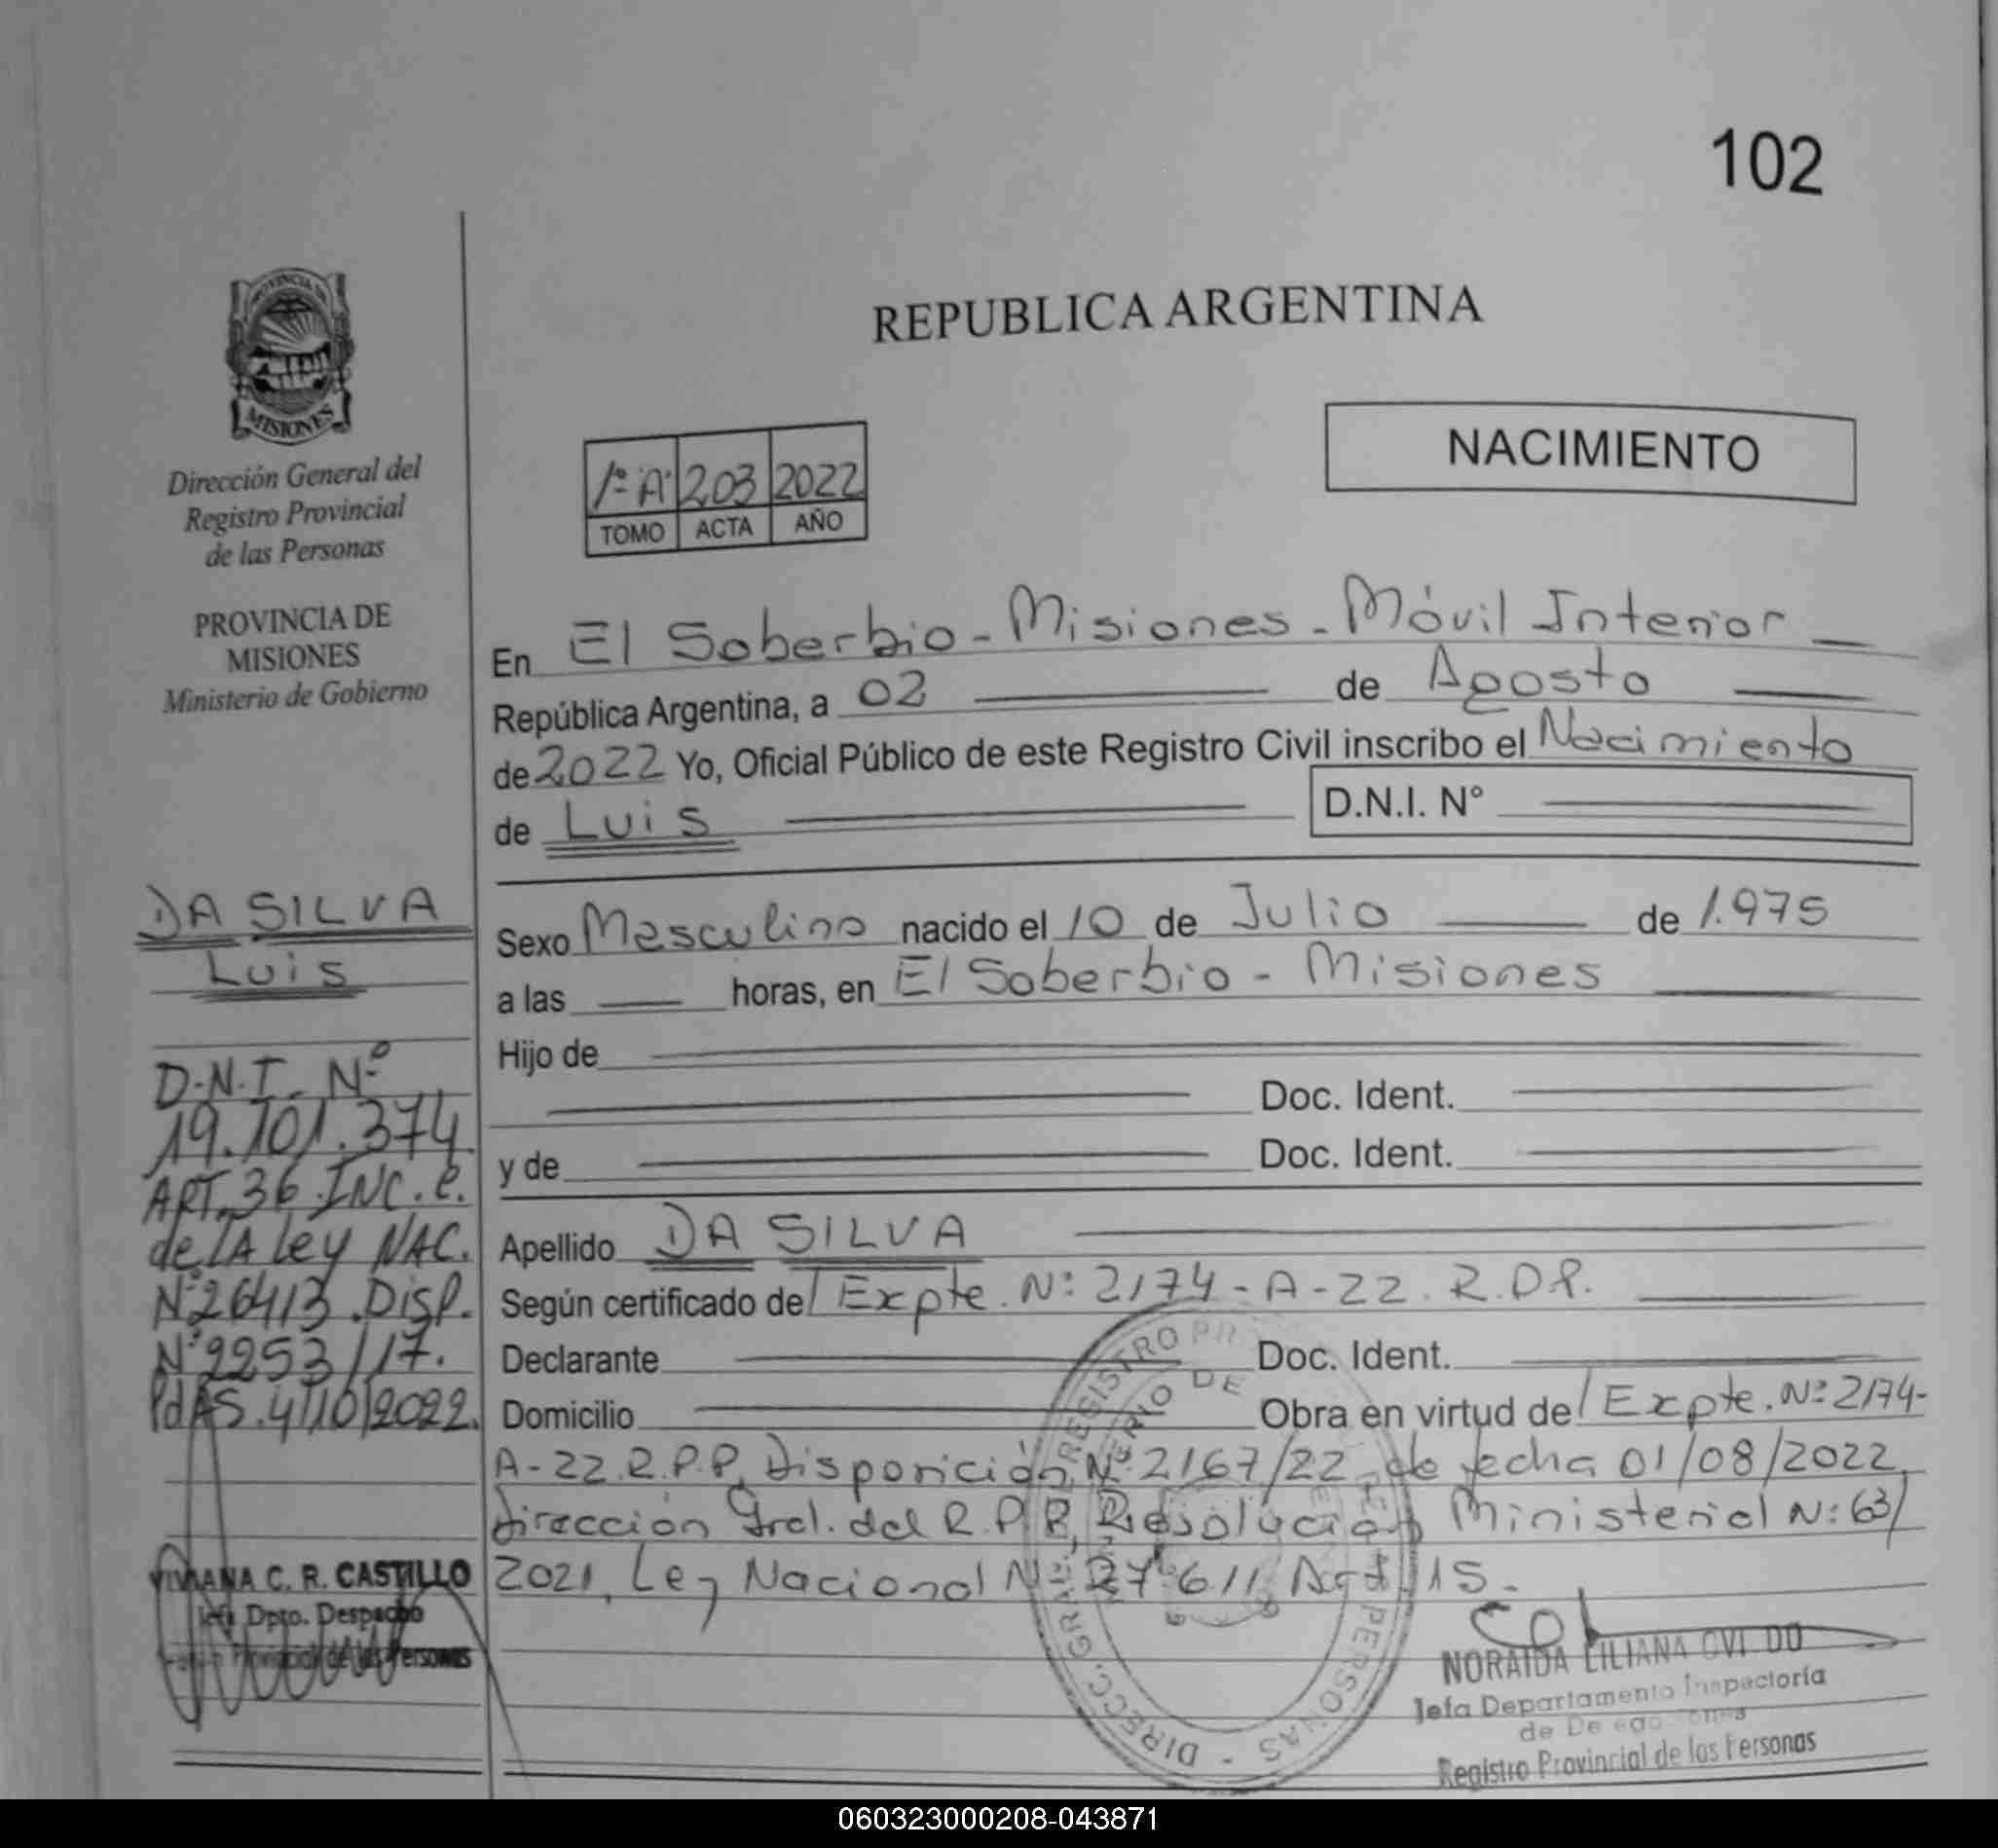 102
PROVINCIA DE
MISIONES
Dirección General del
Registro Provincial
de las Personas
PROVINCIA DE
MISIONES
Ministerio de Gobierno
REPUBLICA ARGENTINA
NACIMIENTO
1º A 203 2022
TOMO ACTA AÑO
En El Soberbio - Misiones - Móvil Interior
República Argentina, a 02 de Agosto
de 2022 Yo, Oficial Público de este Registro Civil inscribo el Nacimiento
de Luis D.N.I. Nº
Sexo Masculino nacido el 10 de Julio de 1.975
a las horas, en El Soberbio - Misiones
Hijo de
Doc. Ident.
y de Doc. Ident.
Apellido DA SILVA
Según certificado del Expte. Nº: 2174 - A - 22. R.D.P.
Declarante Doc. Ident.
Domicilio Obra en virtud del Expte. Nº 2174-
A-22.R.P.P, Disposición Nº 2167/22 de fecha 01/08/2022,
Dirección Gral. del R.P.P, Resolución Ministerial N: 63/
2021, Ley Nacional Nº 27.611 Art 15.-
DA SILVA
Luis
D.N.I. Nº
19.101.374
ART. 36. INC. e.
de LA Ley NAC.
Nº 26413. Disp.
Nº 2253/17.
PdAS. 4/10/2022.
VIVIANA C. R. CASTILLO
Jefa Dpto. Despacho
Provincial de las Personas
NORAIDA LILIANA OVIEDO
Jefa Departamento Inspectoría
de Delegaciones
Registro Provincial de las Personas
060323000208-043871